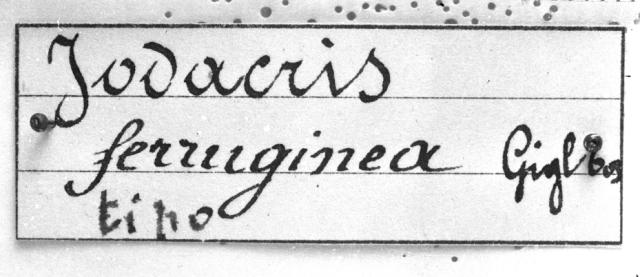 Jodacris
ferruginea Gigl Tos
tipo